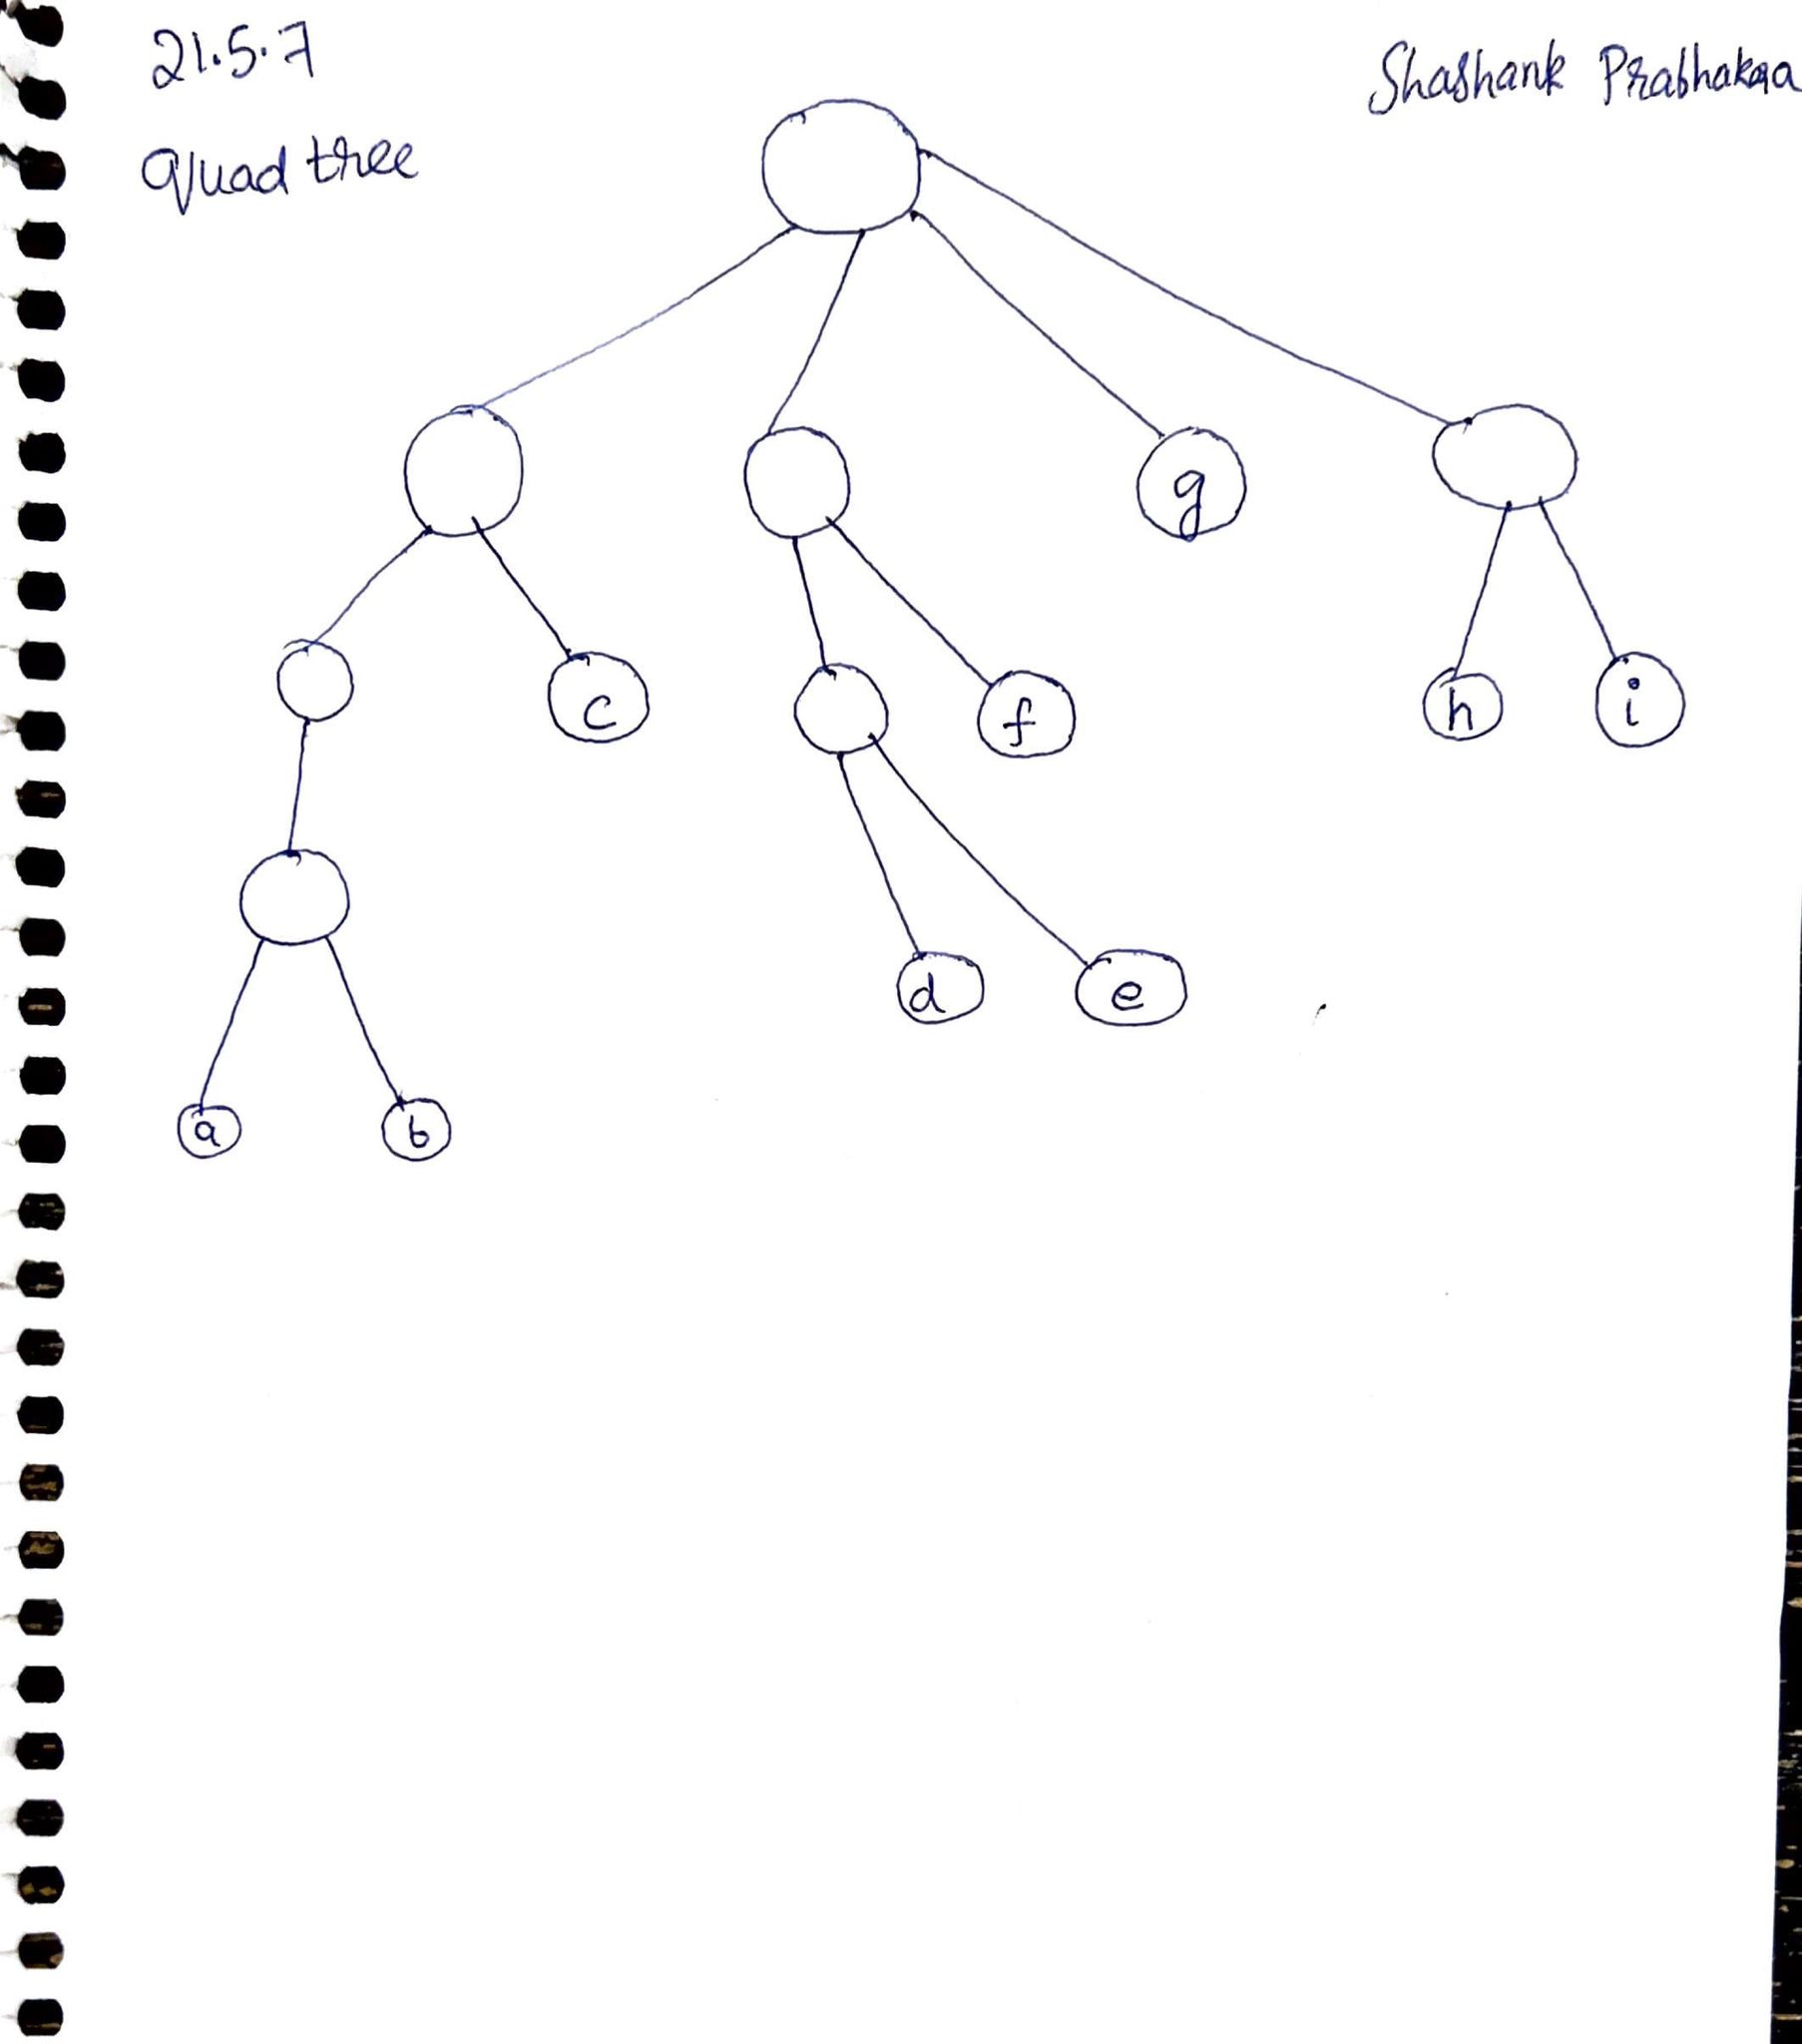 21.5.7
Shashank Prabhakar
quad tree
g
c
f
h
i
d
e
a
b